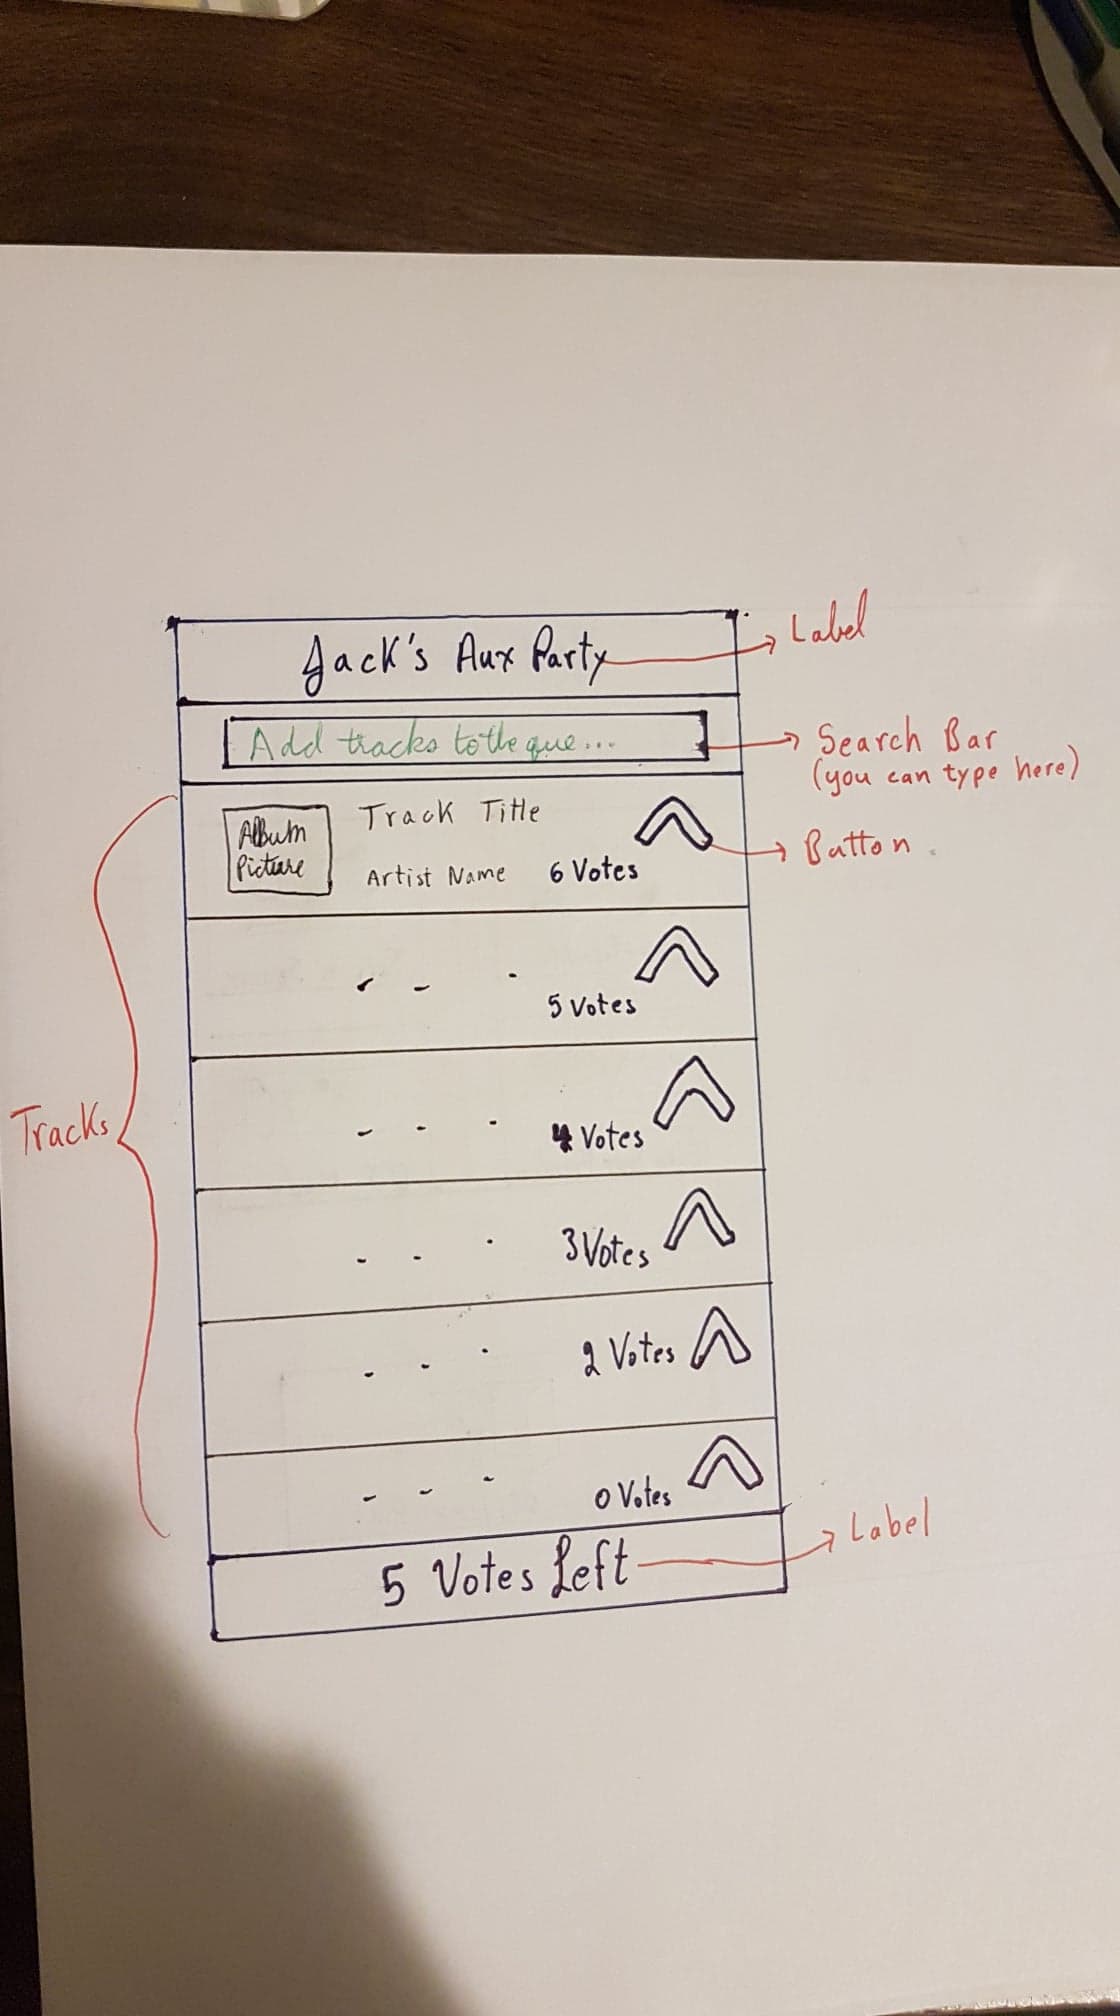 Jack's Aux Party
Label
Add tracks to the que...
Search Bar
(you can type here)
Album
Picture
Track Title
Artist Name
6 Votes
Button
5 Votes
4 Votes
Tracks
3 Votes
2 Votes
0 Votes
5 Votes Left
Label